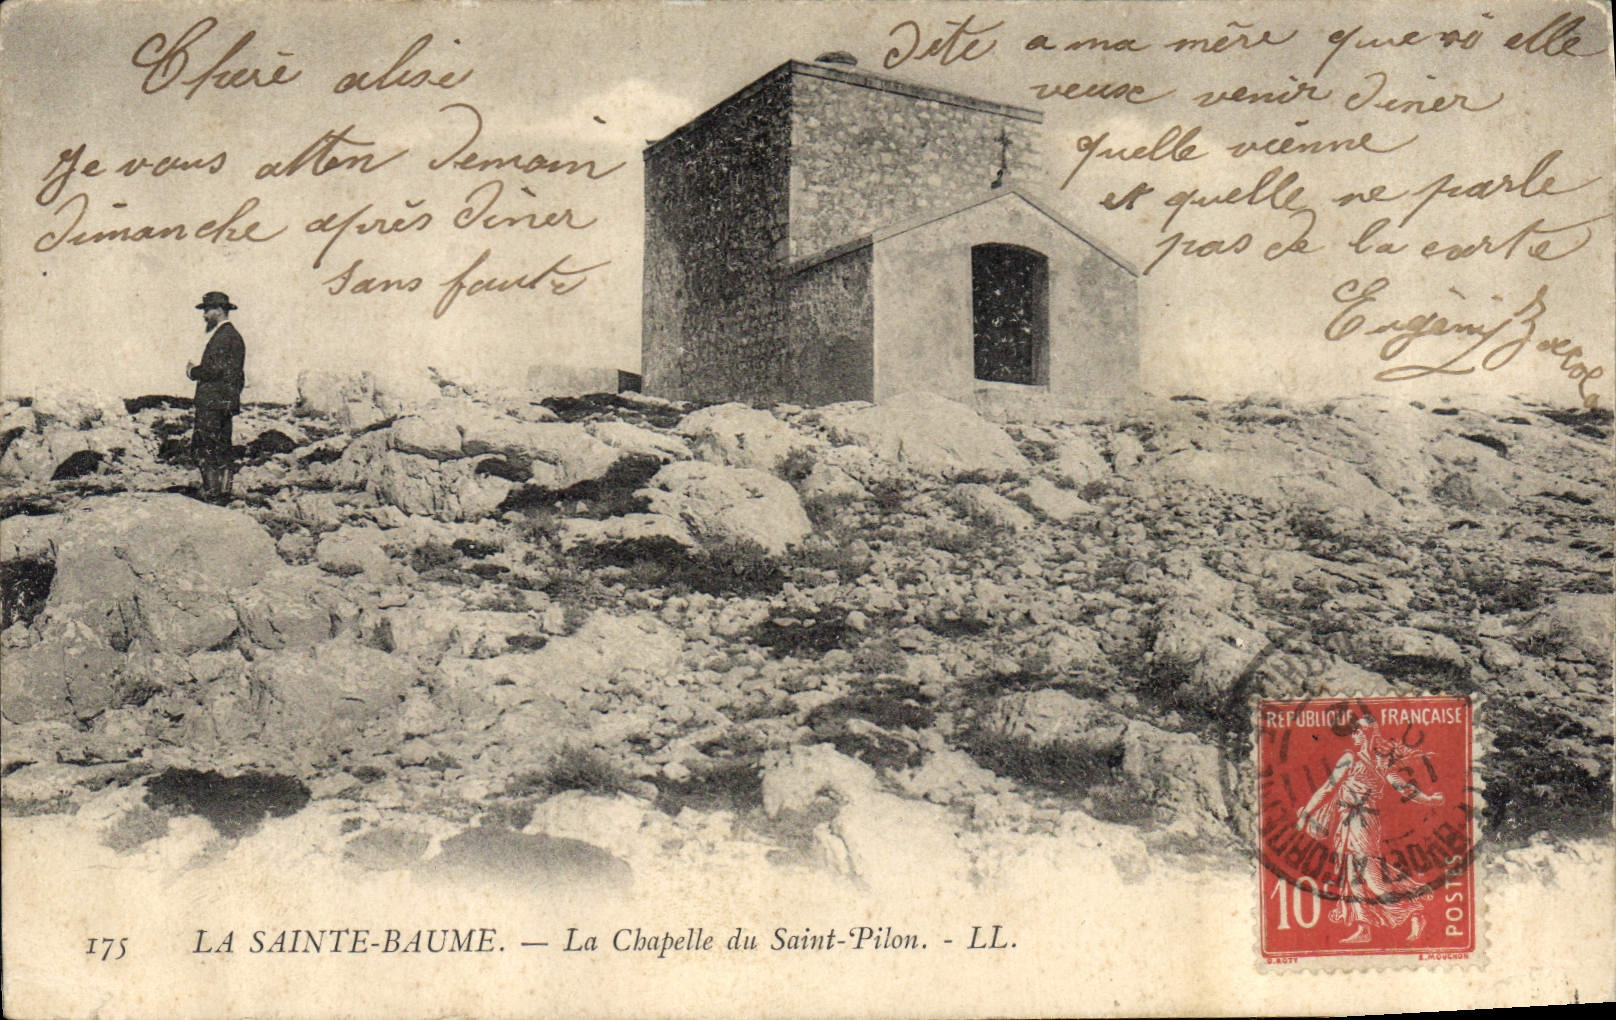 Cherè alise
Je vous atten demain
dimanche après diner
sans faute
dite a ma mère que si elle
veux venir diner
quelle viènne
et quelle ne parle
pas de la carte
Eugèni
RÉPUBLIQUE FRANÇAISE
10c
POSTES
O. ROTY
E. MOUCHON
175 LA SAINTE-BAUME. — La Chapelle du Saint-Pilon. - LL.